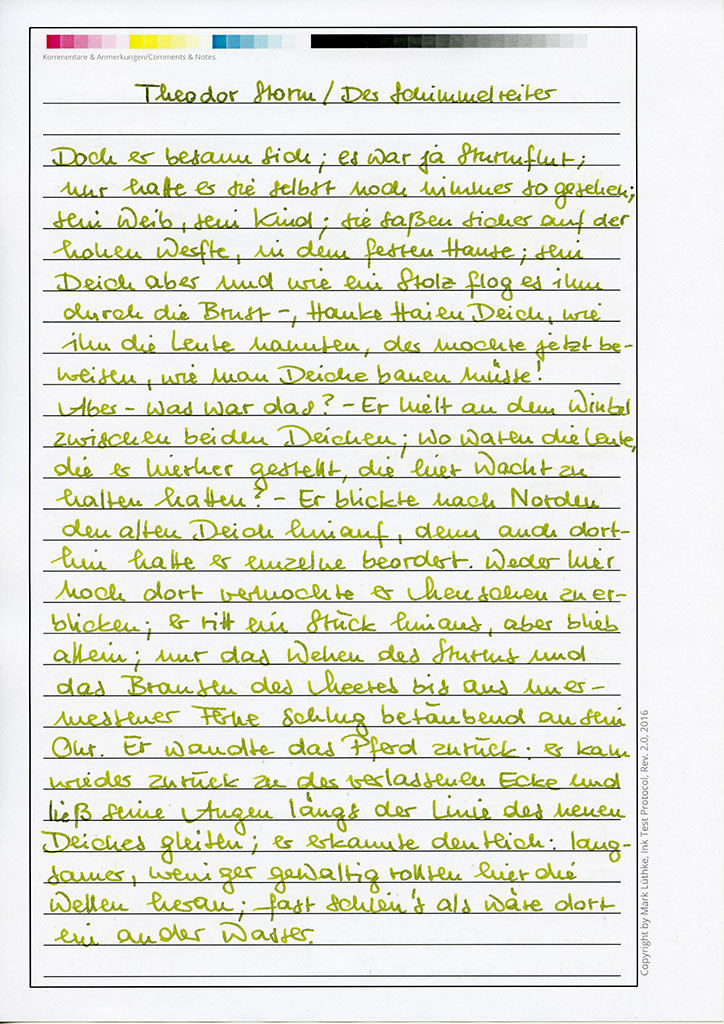 Kommentare & Anmerkungen/Comments & Notes
Theodor Storm / Der Schimmelreiter
Doch er besann sich; es war ja Sturmflut;
nur hatte er sie selbst noch nimmer so gesehen;
sein Weib, sein Kind; sie saßen sicher auf der
hohen Werfte, in dem festen Hause; sein
Deich aber und wie ein Stolz flog es ihm
durch die Brust -, Hauke Haien Deich, wie
ihn die Leute nannten, der mochte jetzt be-
weisen, wie man Deiche bauen müsse!
Aber - was war das? - Er hielt an dem Winkel
zwischen beiden Deichen; wo waren die Leute,
die er hierher gestellt, die hier Wacht zu
halten hatten? - Er blickte nach Norden
den alten Deich hinauf, denn auch dort-
hin hatte er einzelne beordert. Weder hier
noch dort vermochte er Menschen zu er-
blicken; er ritt ein Stück hinaus, aber blieb
allein; nur das Wehen des Sturms und
das Brausen des Meeres bis aus uner-
messener Ferne schlug betäubend an sein
Ohr. Er wandte das Pferd zurück: er kam
wieder zurück zu der verlassenen Ecke und
ließ seine Augen längs der Linie des neuen
Deiches gleiten; er erkannte deutlich: lang-
samer, weniger gewaltig rollten hier die
Wellen heran; fast schien's als wäre dort
ein ander Wasser.
Copyright by Mark Lüthke, Ink Test Protocol, Rev. 2.0, 2016